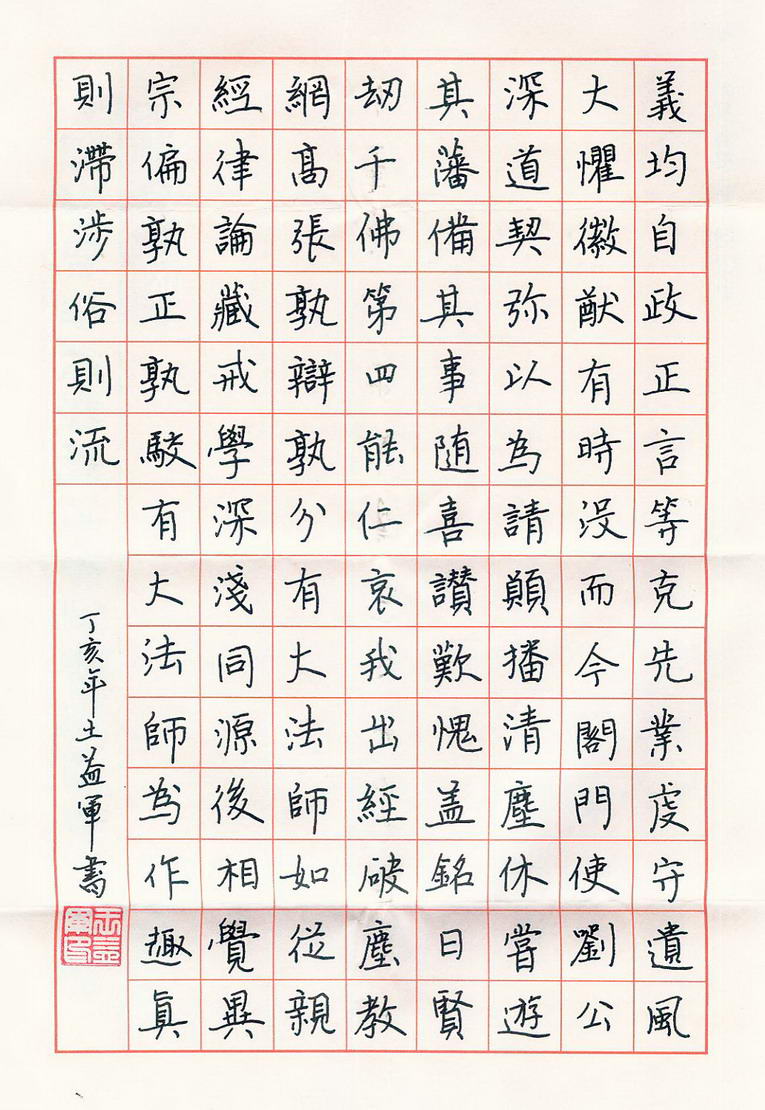 義均自政正言等克先業虔守遺風
大懼徽猷有時没而今閣門使劉公
深道契弥以為請願播清塵休嘗遊
其藩備其事随喜讃歎愧盖銘曰賢
劫千佛第四能仁哀我出經破塵教
網高張孰辯孰分有大法師如従親
經律論藏戒學深淺同源後相覺異
宗偏孰正孰駮有大法師為作趣真
則滯涉俗則流
丁亥年王益軍書